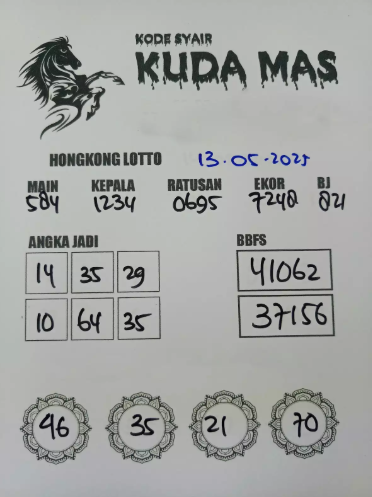 KODE SYAIR
KUDA MAS
HONGKONG LOTTO 13.05.2025
MAIN KEPALA RATUSAN EKOR BJ
584 1234 0695 7248 821
ANGKA JADI BBFS
14 35 29 41062
10 64 35 37156
46 35 21 70